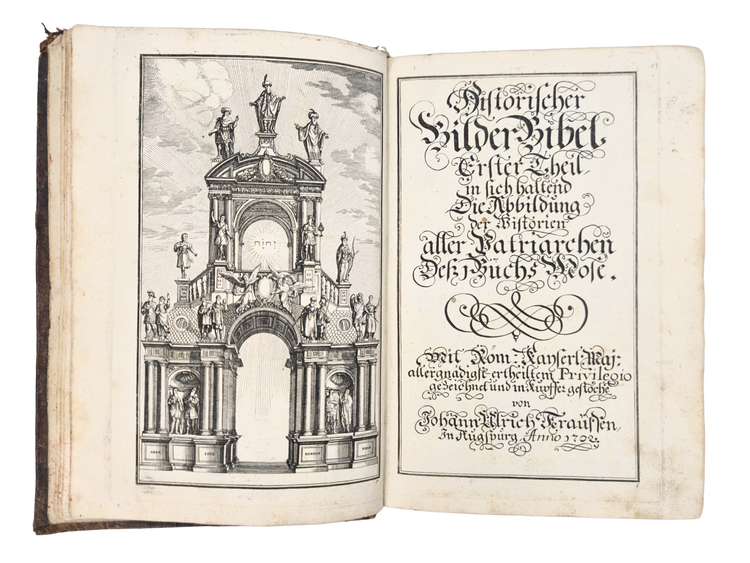 יהוה
Historischer
Bilder Bibel
Erster Theil
in sich haltend
Die Abbildung
der Historien
aller Patriarchen
Deß 1 Buchs Mose.
Mit Röm: Kayserl: Maj:
allergnädigst ertheiltem Privilegio
gezeichnet und in Kupffer gestoche
von
Johann Ulrich Kraussen,
In Augspurg Anno 1702.